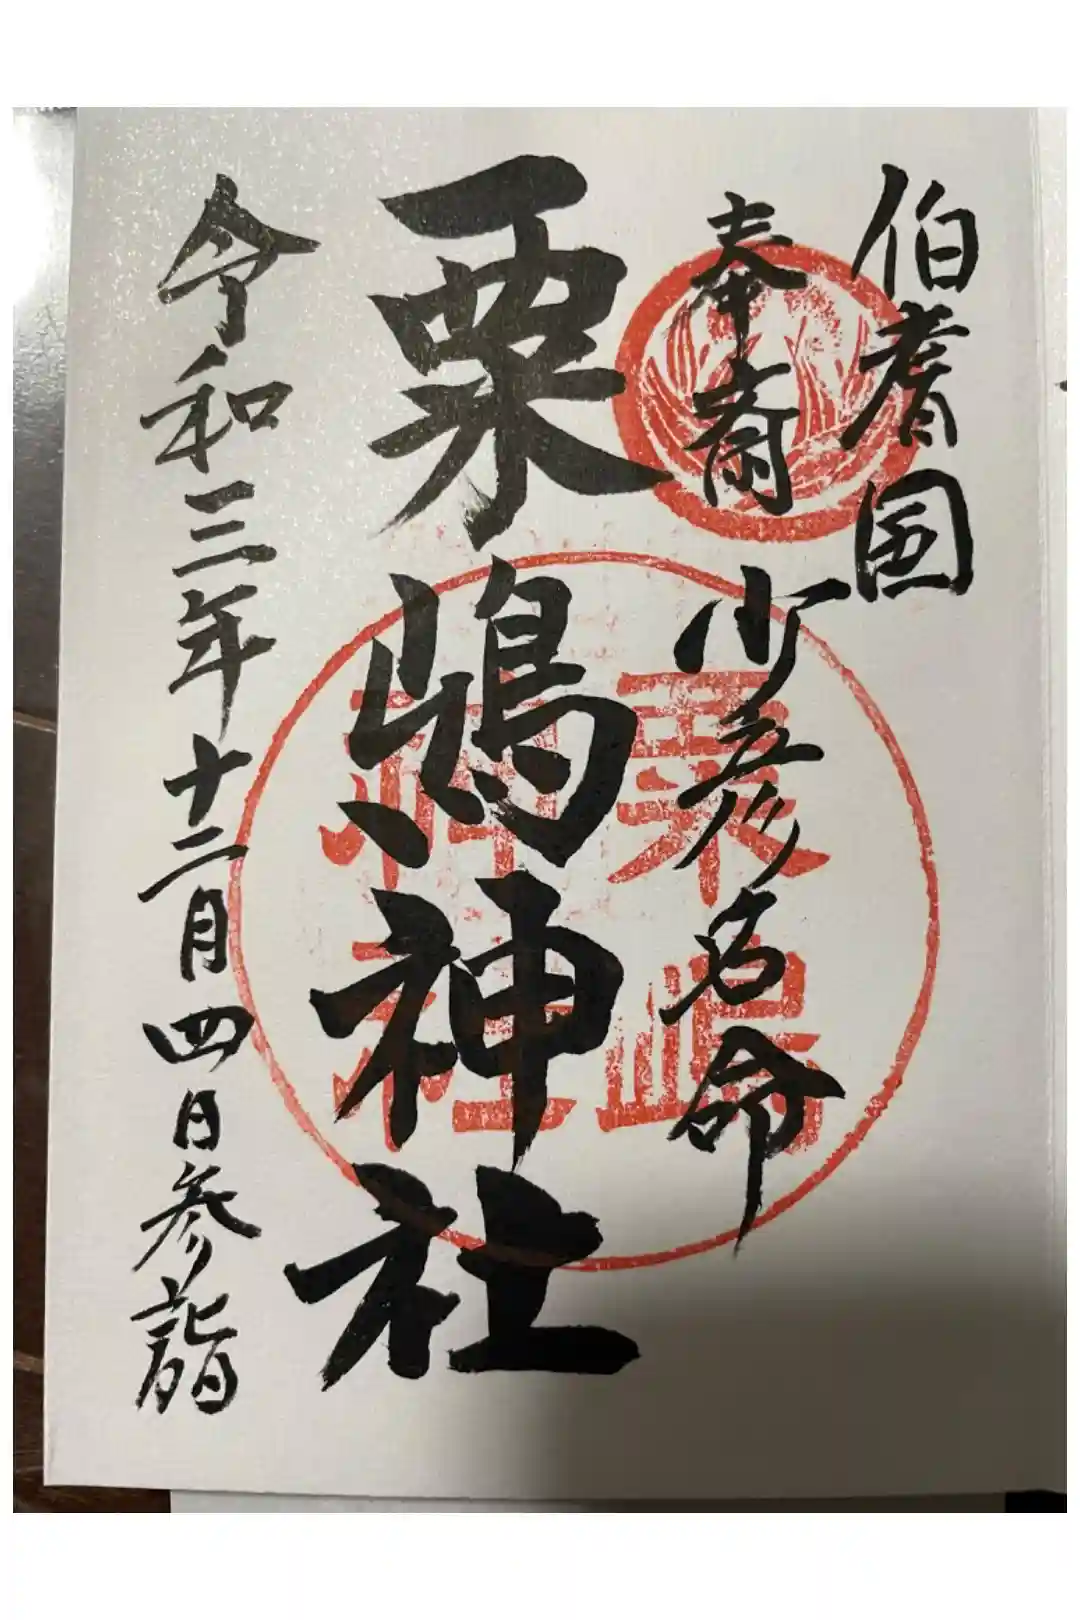 伯耆国
奉斎 少彦名命
粟嶋神社
令和三年十二月四日参詣
粟嶋
神社